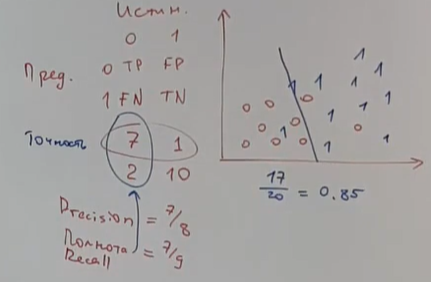 Истин.
0 1
Пред. 0 TP FP
1 FN TN
Точность 7 1
2 10
Precision = 7/8
Полнота
Recall = 7/9
17/20 = 0.85
1 1 1 1 1 1 1 1 1 1 1